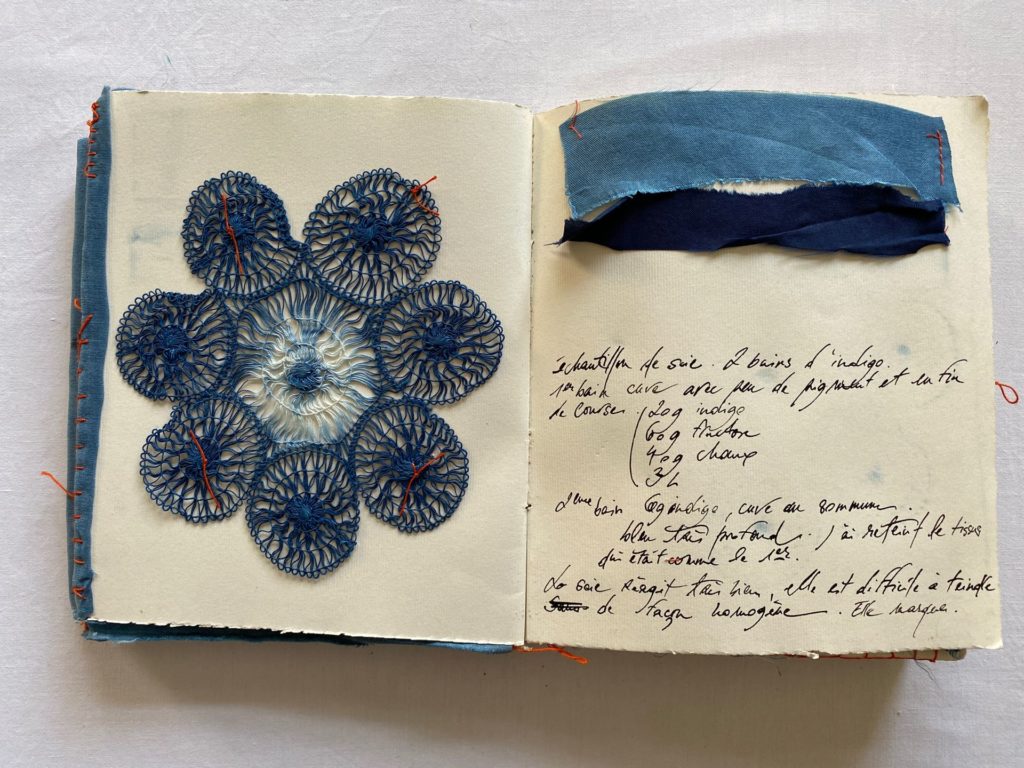 échantillon de soie. 2 bains d'indigo.
1er bain cuve avec peu de pigment et en fin
de course. 20g indigo
60g fructose
40g chaux
3L
2eme bain indigo, cuve au sommum.
bleu très profond. j'ai reteint le tissus
qui était comme le 1er.
La soie réagit très bien, elle est difficile à teindre
de façon homogène. Elle marque.